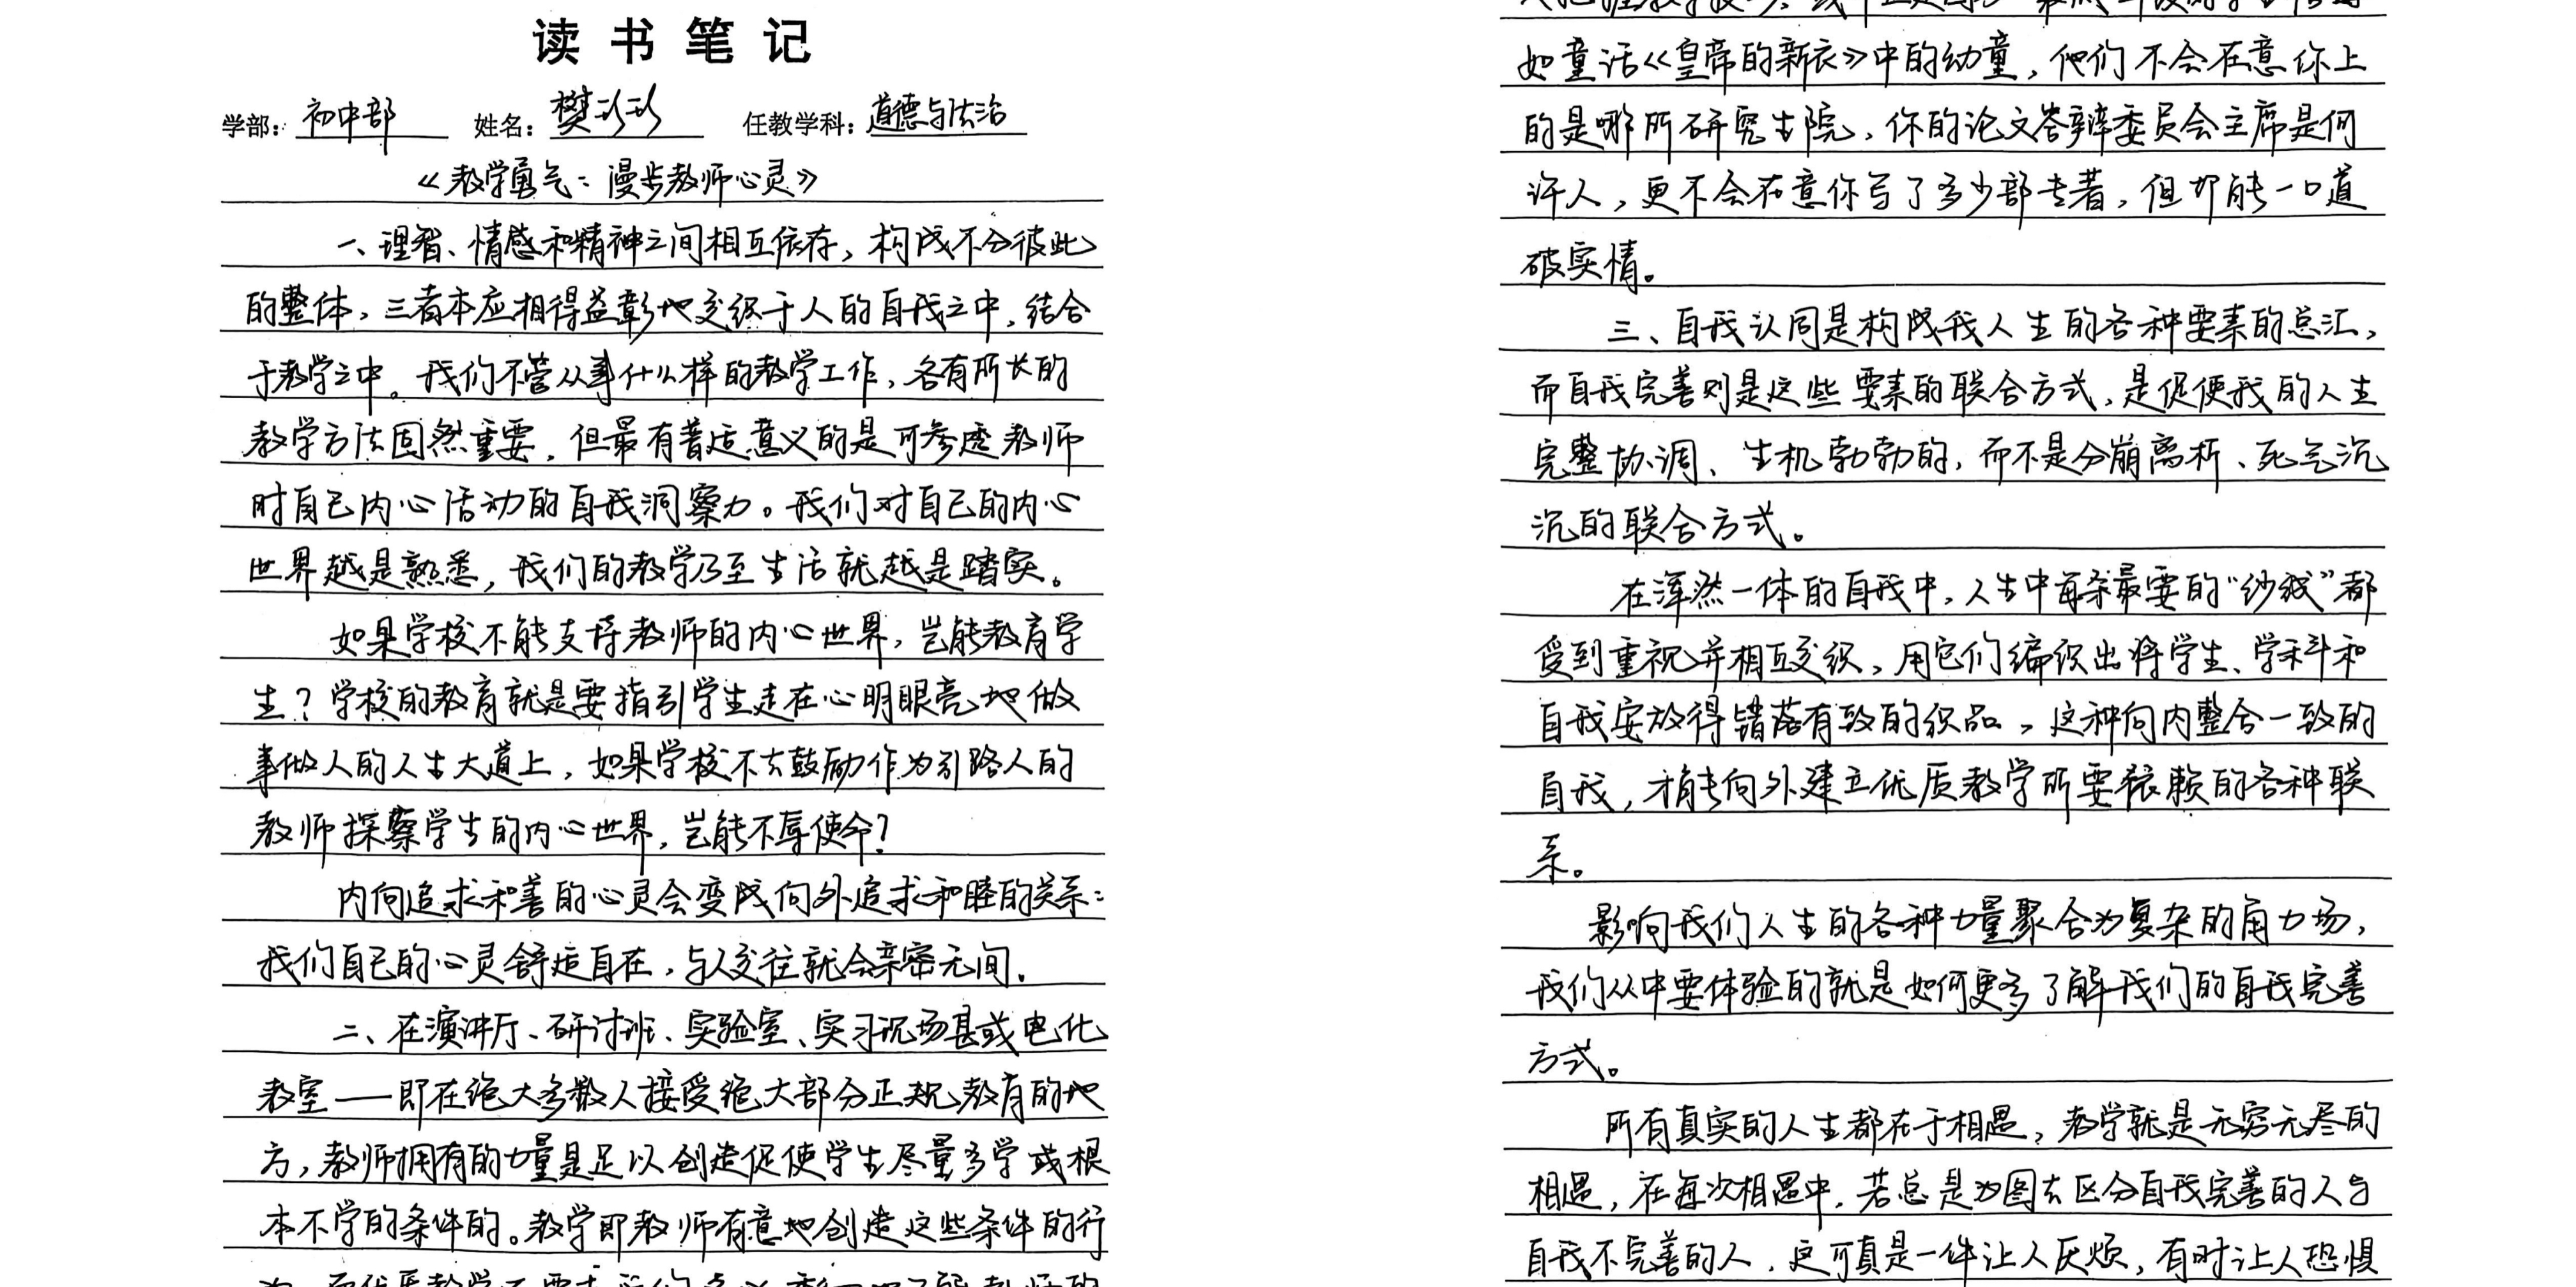 读书笔记
学部：初中部 姓名：樊珍珍 任教学科：道德与法治
《教学勇气：漫步教师心灵》
一、理智、情感和精神之间相互依存，构成不分彼此
的整体，三者本应相得益彰地交织于人的自我之中，结合
于教学之中。我们不管从事什么样的教学工作，各有所长的
教学方法固然重要，但最有普适意义的是可参透教师
对自己内心活动的自我洞察力。我们对自己的内心
世界越是熟悉，我们的教学乃至生活就越是踏实。
如果学校不能支持教师的内心世界，岂能教育学
生？学校的教育就是要指引学生走在心明眼亮地做
事做人的人生大道上，如果学校不去鼓励作为引路人的
教师探察学生的内心世界，岂能不辱使命？
内向追求和善的心灵会变成向外追求和睦的关系：
我们自己的心灵舒适自在，与人交往就会亲密无间。
二、在演讲厅、研讨班、实验室、实习现场甚或电化
教室——即在绝大多数人接受绝大部分正规教育的地
方，教师拥有的力量是足以创造促使学生尽量多学或根
本不学的条件的。教学即教师有意地创造这些条件的行
如童话《皇帝的新衣》中的幼童，他们不会在意你上
的是哪所研究生院，你的论文答辩委员会主席是何
许人，更不会在意你写了多少部专著，但却能一口道
破实情。
三、自我认同是构成我人生的各种要素的总汇，
而自我完善则是这些要素的联合方式，是促使我的人生
完整协调、生机勃勃的，而不是分崩离析、死气沉
沉的联合方式。
在浑然一体的自我中，人生中每条最要的“纱线”都
受到重视并相互交织，用它们编织出将学生、学科和
自我安放得错落有致的织品，这种向内整合一致的
自我，才能向外建立优质教学所要依赖的各种联
系。
影响我们人生的各种力量聚合为复杂的角力场，
我们从中要体验的就是如何更多了解我们的自我完善
方式。
所有真实的人生都在于相遇，教学就是无穷无尽的
相遇，在每次相遇中，若总是力图去区分自我完善的人与
自我不完善的人，这可真是一件让人厌烦，有时让人恐惧